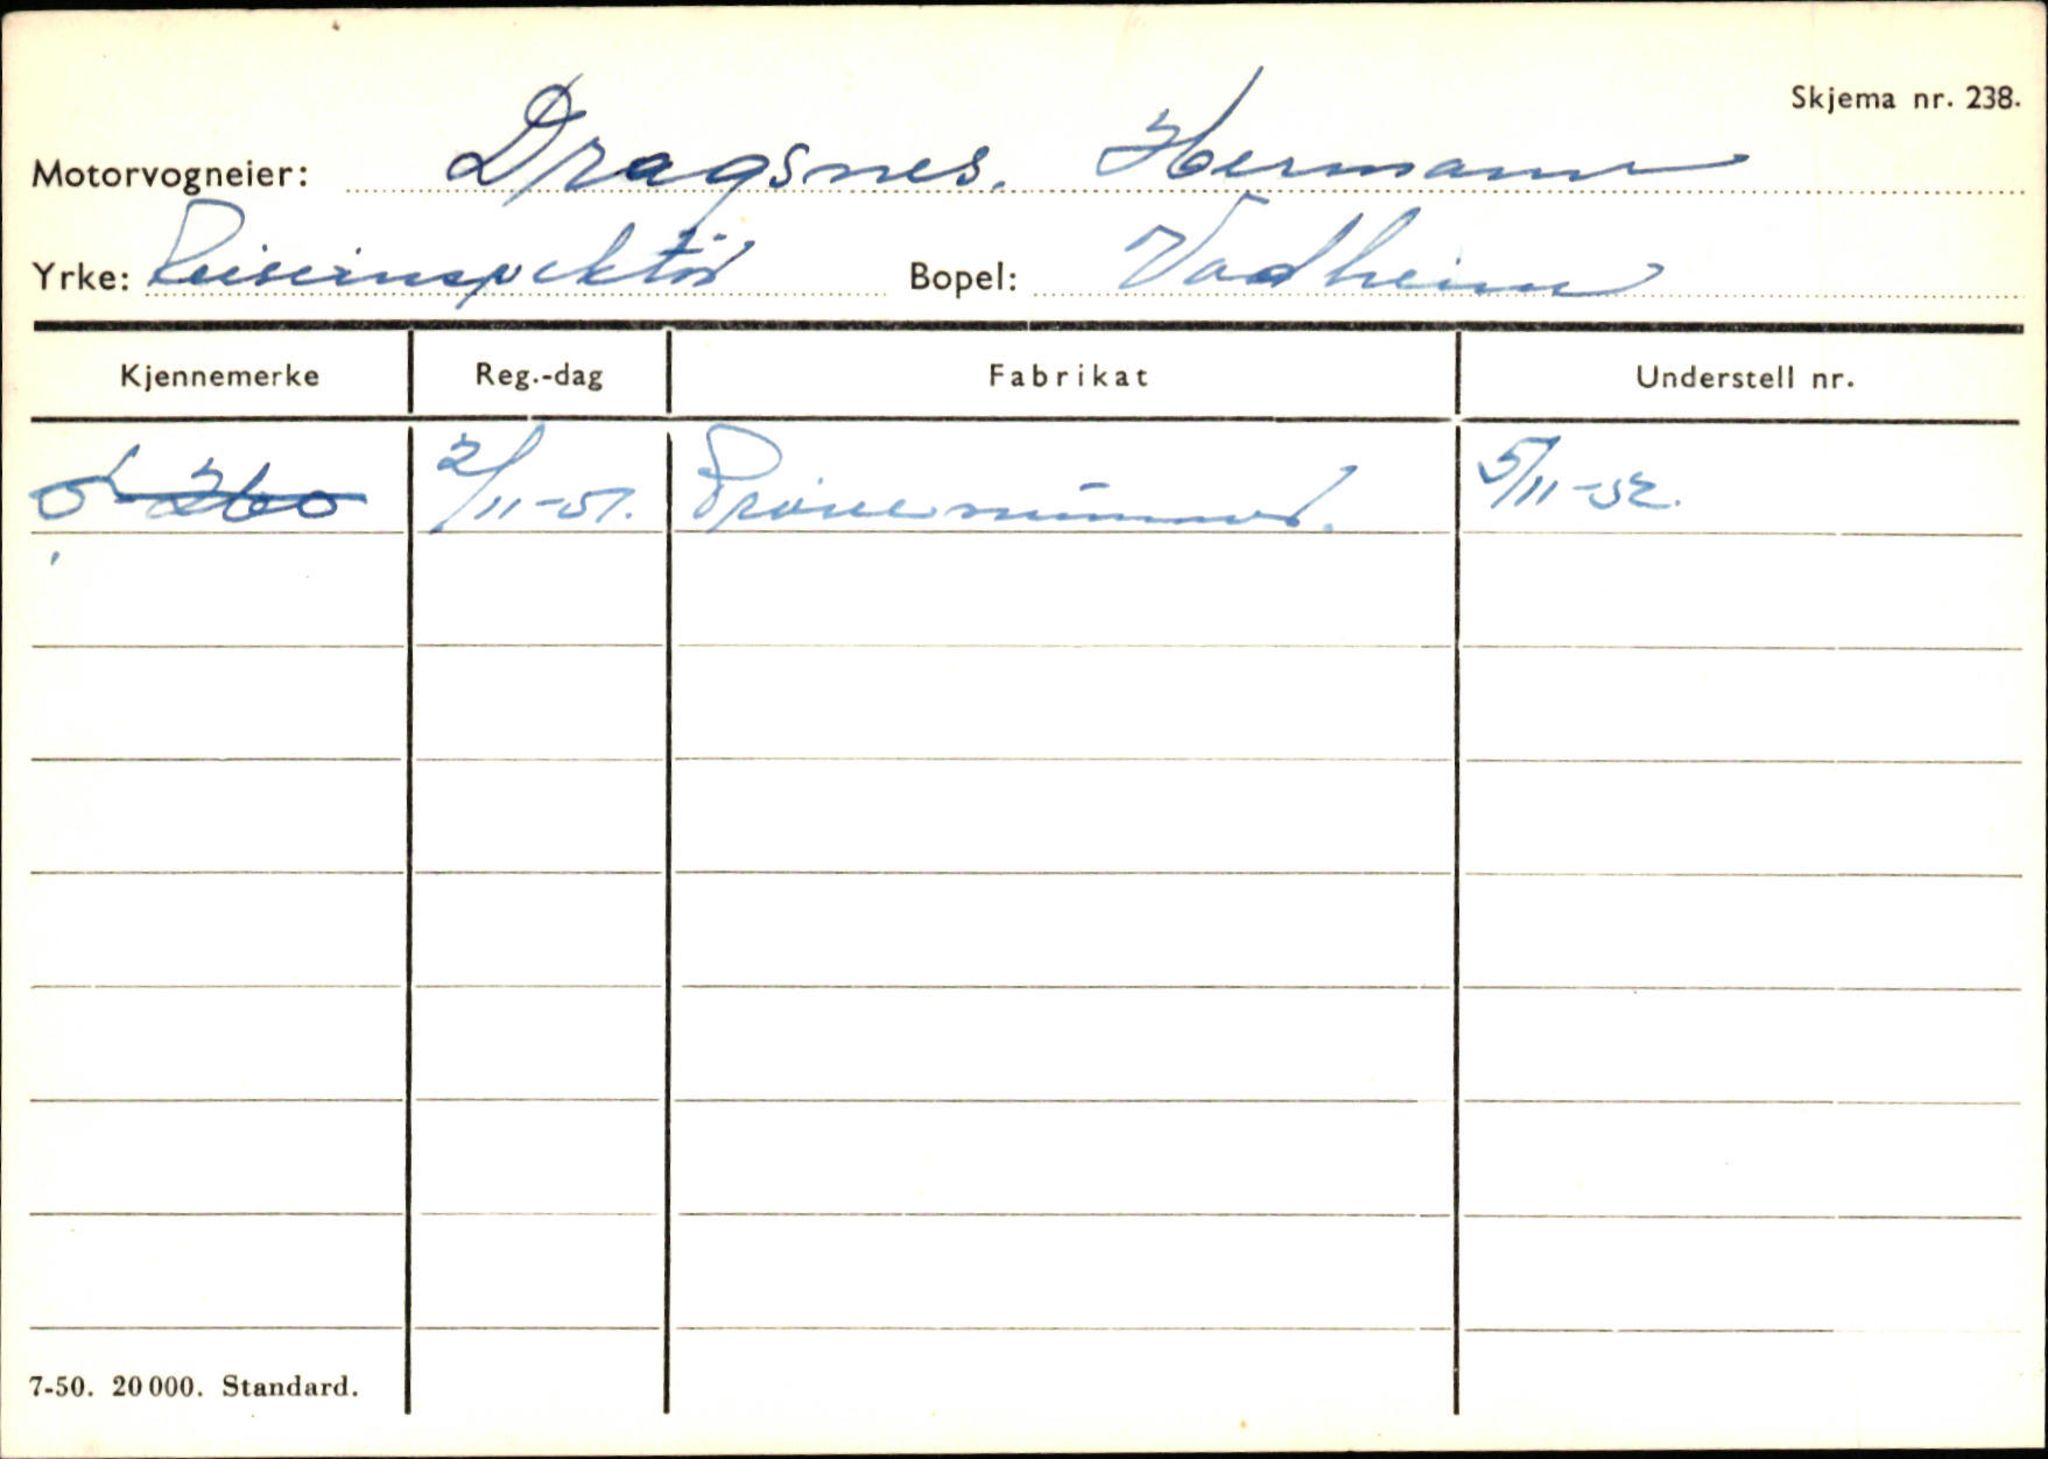 Skjema nr. 238.
Motorvogneier: Dragsnes. Hermann
Yrke: Reiseinspektör Bopel: Vadheim
Kjennemerke Reg.-dag Fabrikat Understell nr.
2/11-51. Prövenummer. 5/11-52.
7-50. 20 000. Standard.